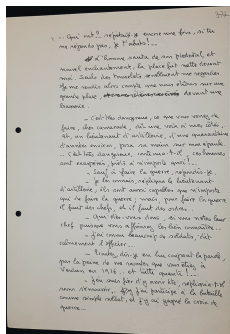 - Qui est? répétai-je encore une fois, si tu
ne réponds pas, je t'abats!...
L'homme sauta de son piédestal, et
nouvel enchantement, la place fut nette devant
moi. Seuls des travaillaient
me rendis alors compte que nous étions sur une
grande place, devant une
- C'est très dangereux, ce que vous venez de
faire, cher camarade, dit une voix à mes côtés,
et un lieutenant d'artillerie, d'une quarantaine
d'années environ, posa sa main sur mon épaule
- C'est très dangereux, continua-t-il, ces hommes,
sont exaspérés, prêts à n'importe quoi!...
- Sauf à faire la guerre, répondis-je
- Je les connais, répliqua le lieutenant
d'artillerie, ils sont aussi capables que n'importe
qui de faire la guerre; mais, pour faire la guerre
il faut des chefs, et il faut des ordres.
- Qui êtes-vous donc, si vous n'êtes leur
chef puisque vous affirmez les bien connaître...
- J'ai connu beaucoup de soldats, dit
calmement l'officier...
- dis-je en lui coupant la parole,
par la peine de me raconter que vous étiez à
Verdun, en 1916... et toute
sans s'émouvoir. j'ai participé à la bataille
comme simple soldat, et j'y ai gagné la croix de
guerre...